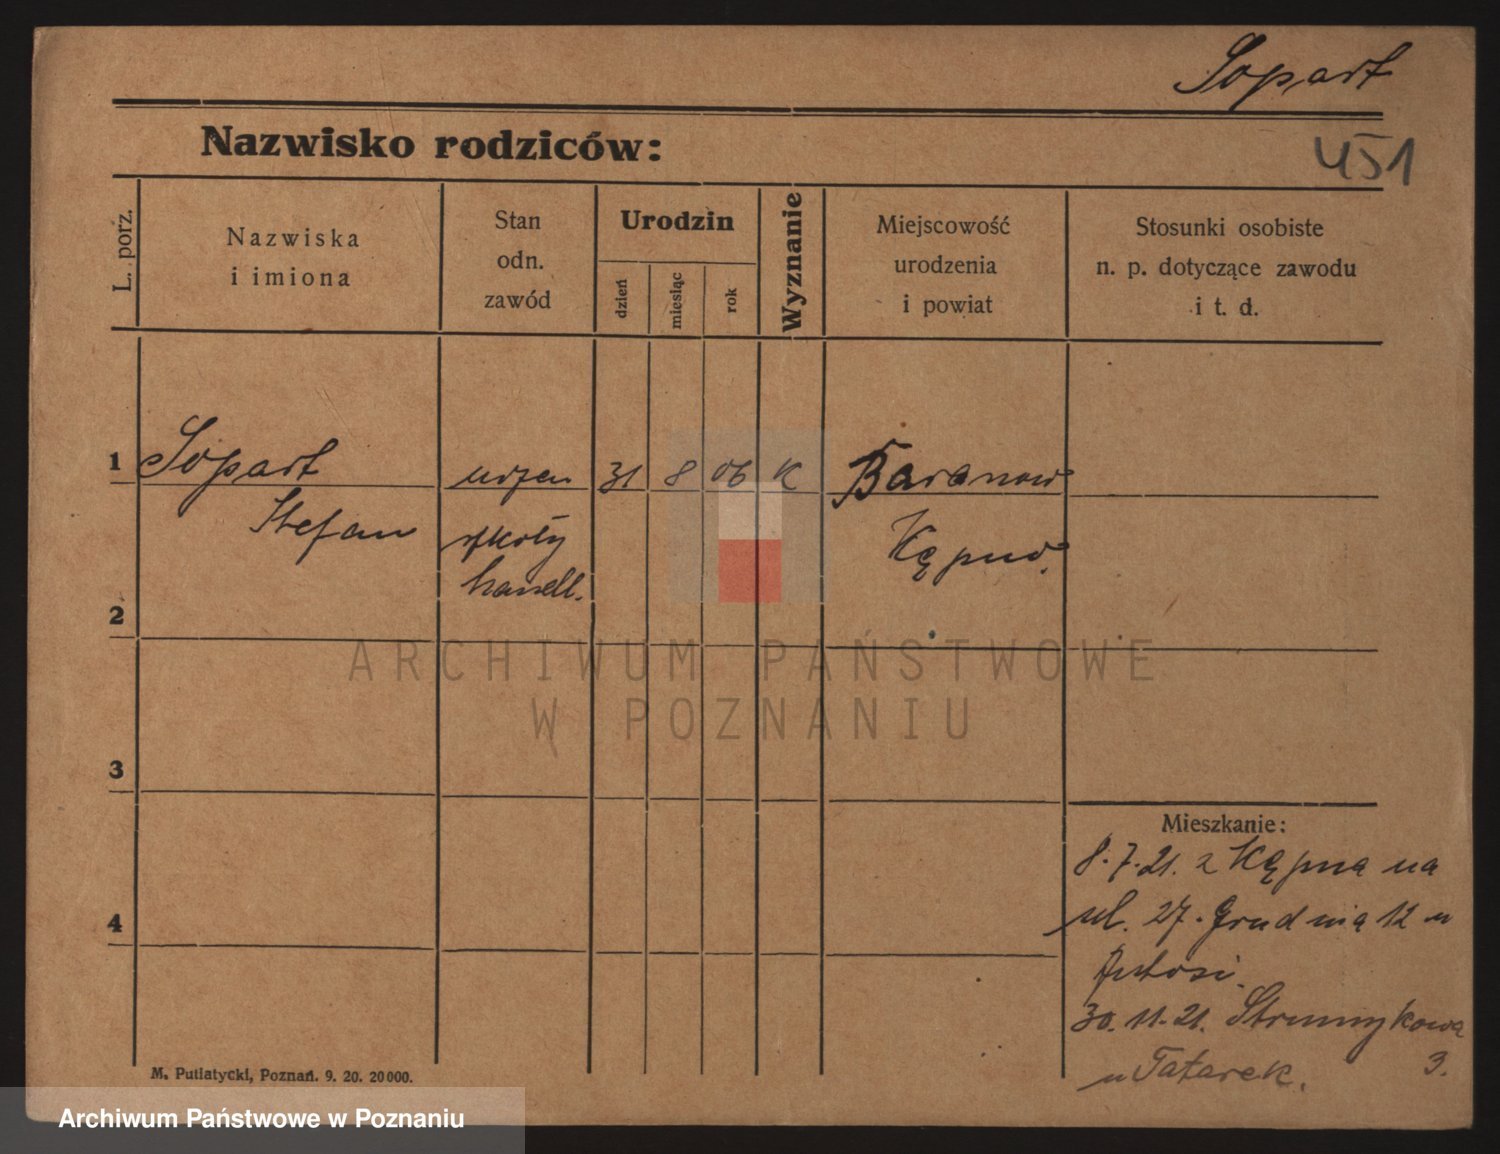 Sopart
Nazwisko rodziców:
451
L. porz.
Nazwiska
i imiona
Stan
odn.
zawód
Urodzin
dzień
miesiąc
rok
Wyznanie
Miejscowość
urodzenia
i powiat
Stosunki osobiste
n. p. dotyczące zawodu
i t. d.
1 Sopart uczen 31 8 06 K Baranow
Stefan szkoły Kępno.
handl.
2
ARCHIWUM PAŃSTWOWE
W POZNANIU
3
Mieszkanie:
8.7.21. z Kępna na
4
ul. 27. Grudnia 12 u
30.11.21. Strumykowa
3.
u Tatarek.
M. Putiatycki, Poznań. 9. 20. 20000.
Archiwum Państwowe w Poznaniu